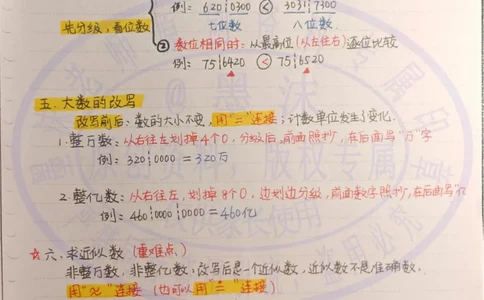 例：620┆0300 < 3031┆7300
先分级，看位数
七位数 八位数
② 数位相同时：从最高位(从左往右)逐位比较
例：75┆6420 < 75┆6520
五. 大数的改写
改写前后：数的大小不变，用"="连接；计数单位发生了变化.
1. 整万数：从右往左划掉4个0，分级后，前面照抄，在后面写"万"字
例：320┆0000 = 320万
2. 整亿数：从右往左，划掉8个0，边划边分级，前面数字照抄，在后面写"亿
例：460┆0000┆0000 = 460亿
☆ 六. 求近似数 (重难点)
非整万数，非整亿数，改写后是一个近似数，近似数不是准确数.
用"≈"连接 (也可以用"="连接)